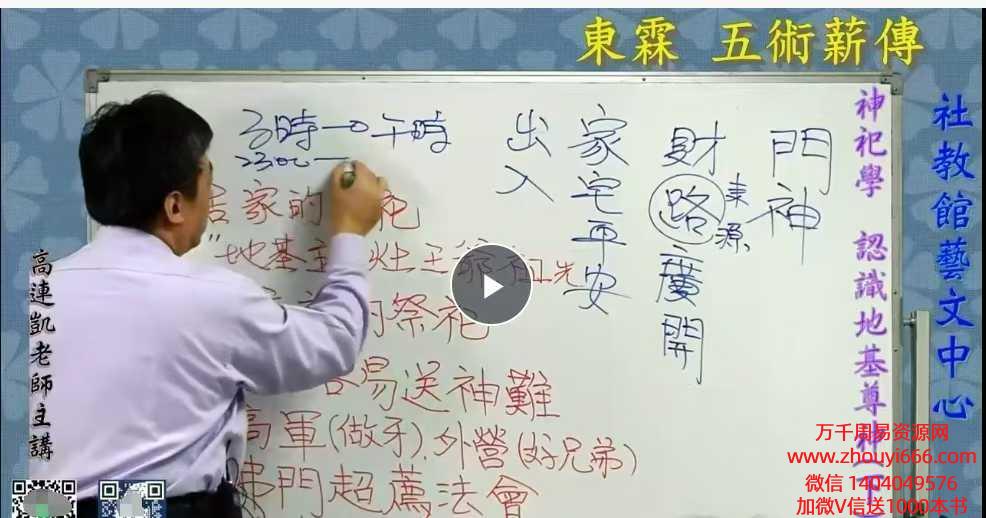 東霖 五術薪傳
社教館藝文中心
神祀學 認識地基尊神(下
門神
財路廣開
東源
家宅平安
出入
子時一〇午時
2300一
居家的 祀
"地基主 灶王爺 祖先
的祭祀
容易送神難
犒軍(做牙),外營(好兄弟)
佛門超薦法會
高連凱老師主講
万千周易资源网
www.zhouyi666.com
微信 1404049576
加微V信送1000本书